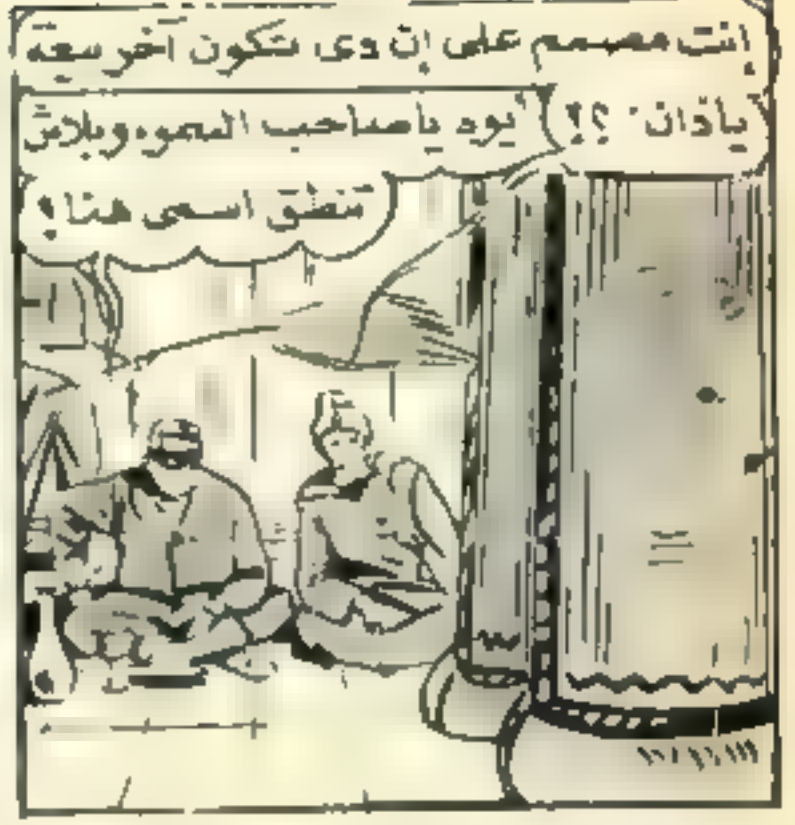 إنت مصمم على إن دى تكون آخر بيعة
ياذان ؟؟
أيوه ياصاحب السمو، وبلاش
تنطق اسمى هنا !